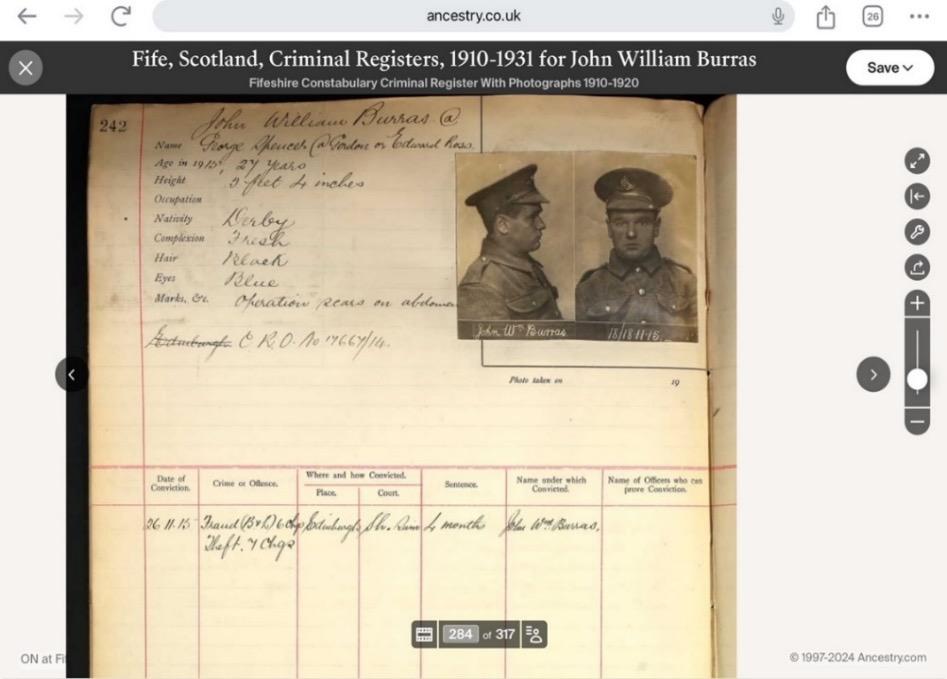 ancestry.co.uk
26
Fife, Scotland, Criminal Registers, 1910-1931 for John William Burras
Fifeshire Constabulary Criminal Register With Photographs 1910-1920
Save
242
John William Burras @
Name George Spencer @ Gordon or Edward Ross.
Age in 1915, 27 years
Height 5 feet 4 inches
Occupation
Nativity Derby
Complexion Fresh
Hair Black
Eyes Blue
Marks, &c. Operation scars on abdomen
Edinburgh C.R.O. No 17667/14.
John Wm Burras 18/18.11.15.
Photo taken on 19
Date of Conviction. Crime or Offence. Where and how Convicted. Sentence. Name under which Convicted. Name of Officers who can prove Conviction.
Place. Court.
26.11.15 Fraud (B&L) 6 chgs Edinburgh Sh. Sum 4 months John Wm Burras.
Theft. 7 Chgs
284 of 317
ON at Fi
© 1997-2024 Ancestry.com